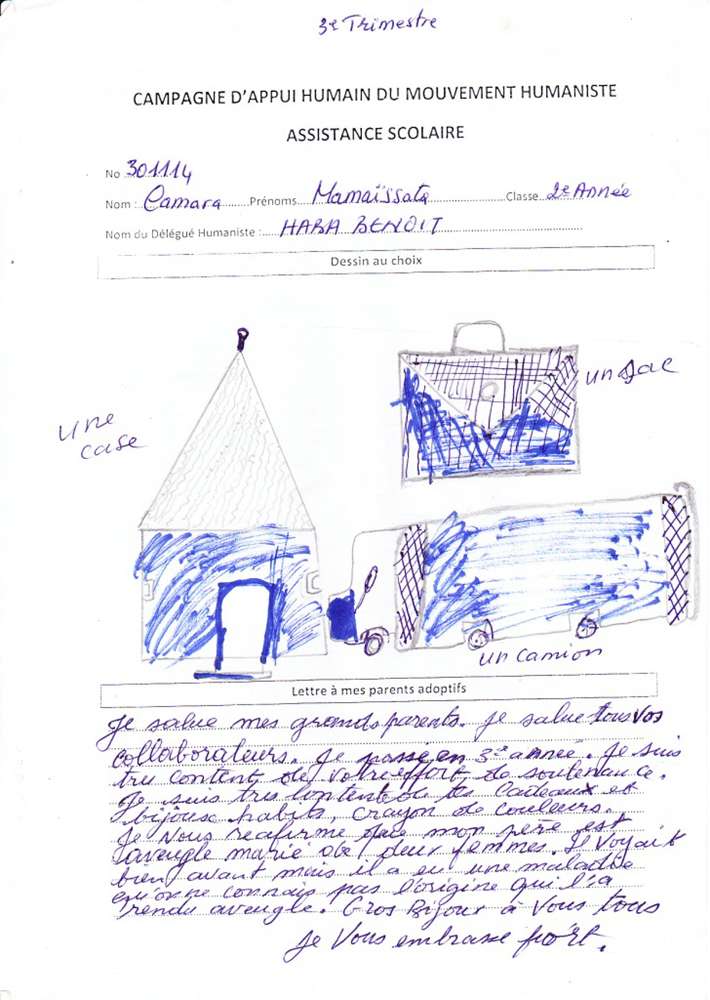 3e Trimestre
CAMPAGNE D'APPUI HUMAIN DU MOUVEMENT HUMANISTE
ASSISTANCE SCOLAIRE
No 301114
Nom : Camara Prénoms Mamaïssata Classe 2e Année
Nom du Délégué Humaniste : HABA BENOIT
Dessin au choix
une
case
un sac
un camion
Lettre à mes parents adoptifs
Je salue mes grands parents. Je salue tous vos
collaborateurs. Je passe en 3e année. Je suis
tru content de votre effort de soutenance.
Je suis tres contente de tes Cadeaux et
bijoux habits, crayon de couleurs.
Je Nous reafirme que mon père est
aveugle marié de deux femmes. Il voyait
bien avant mais il a eu une maladie
qu'on ne connais pas l'origine qui l'a
rendu aveugle. Gros Bijour à vous tous
Je Vous embrasse fort.